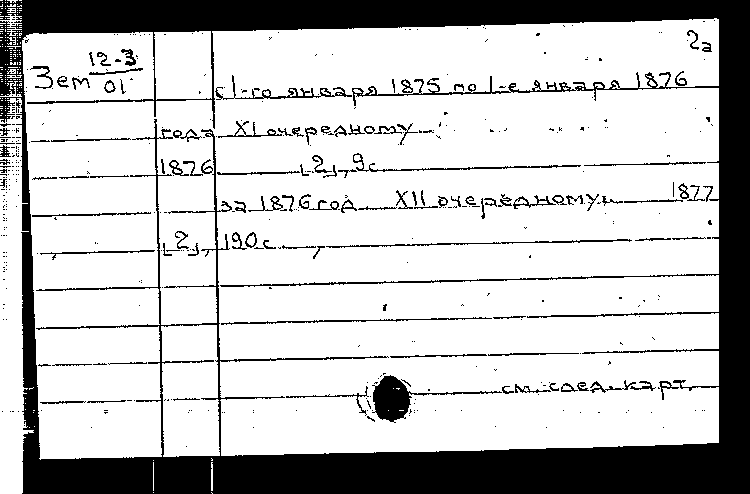 2а
Зем 12-3/01
с 1-го января 1875 по 1-е января 1876
года XI очередному
1876 [2], 9с
за 1876 год. XII очередному. 1877
[2], 190с.
см. след. карт.